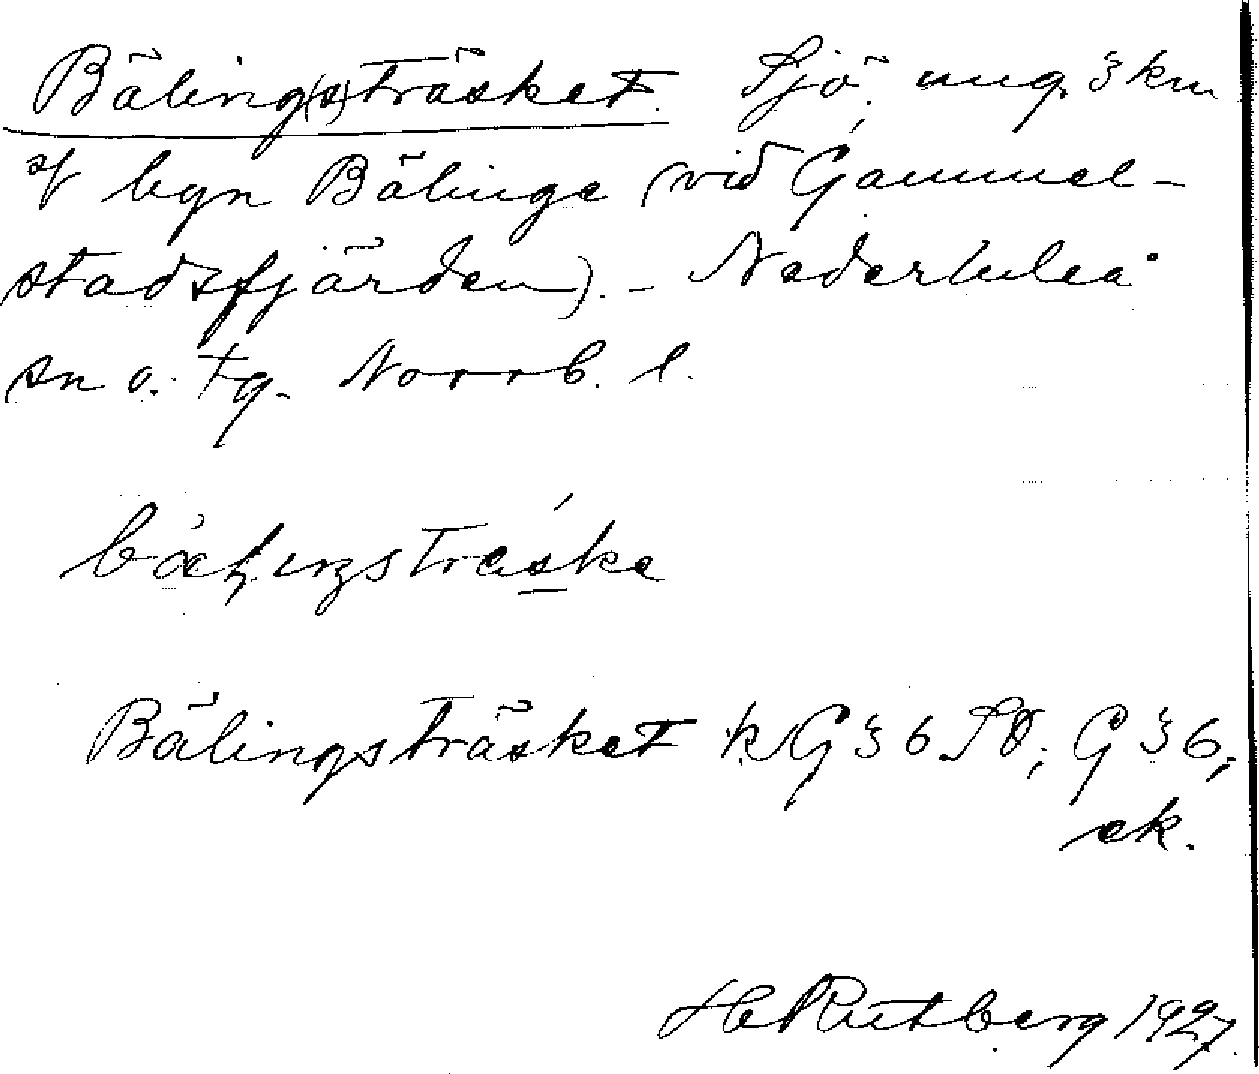 Bäling(s)träsket. Sjö, ung. 3 km
byn Bälinge (vid Gammel-
stadsfjärden). - Nederluleå
sn o. tg. Norrb. l.
Bälingsträsket kG36SO; G36,
ek.
H Rutberg 1927.